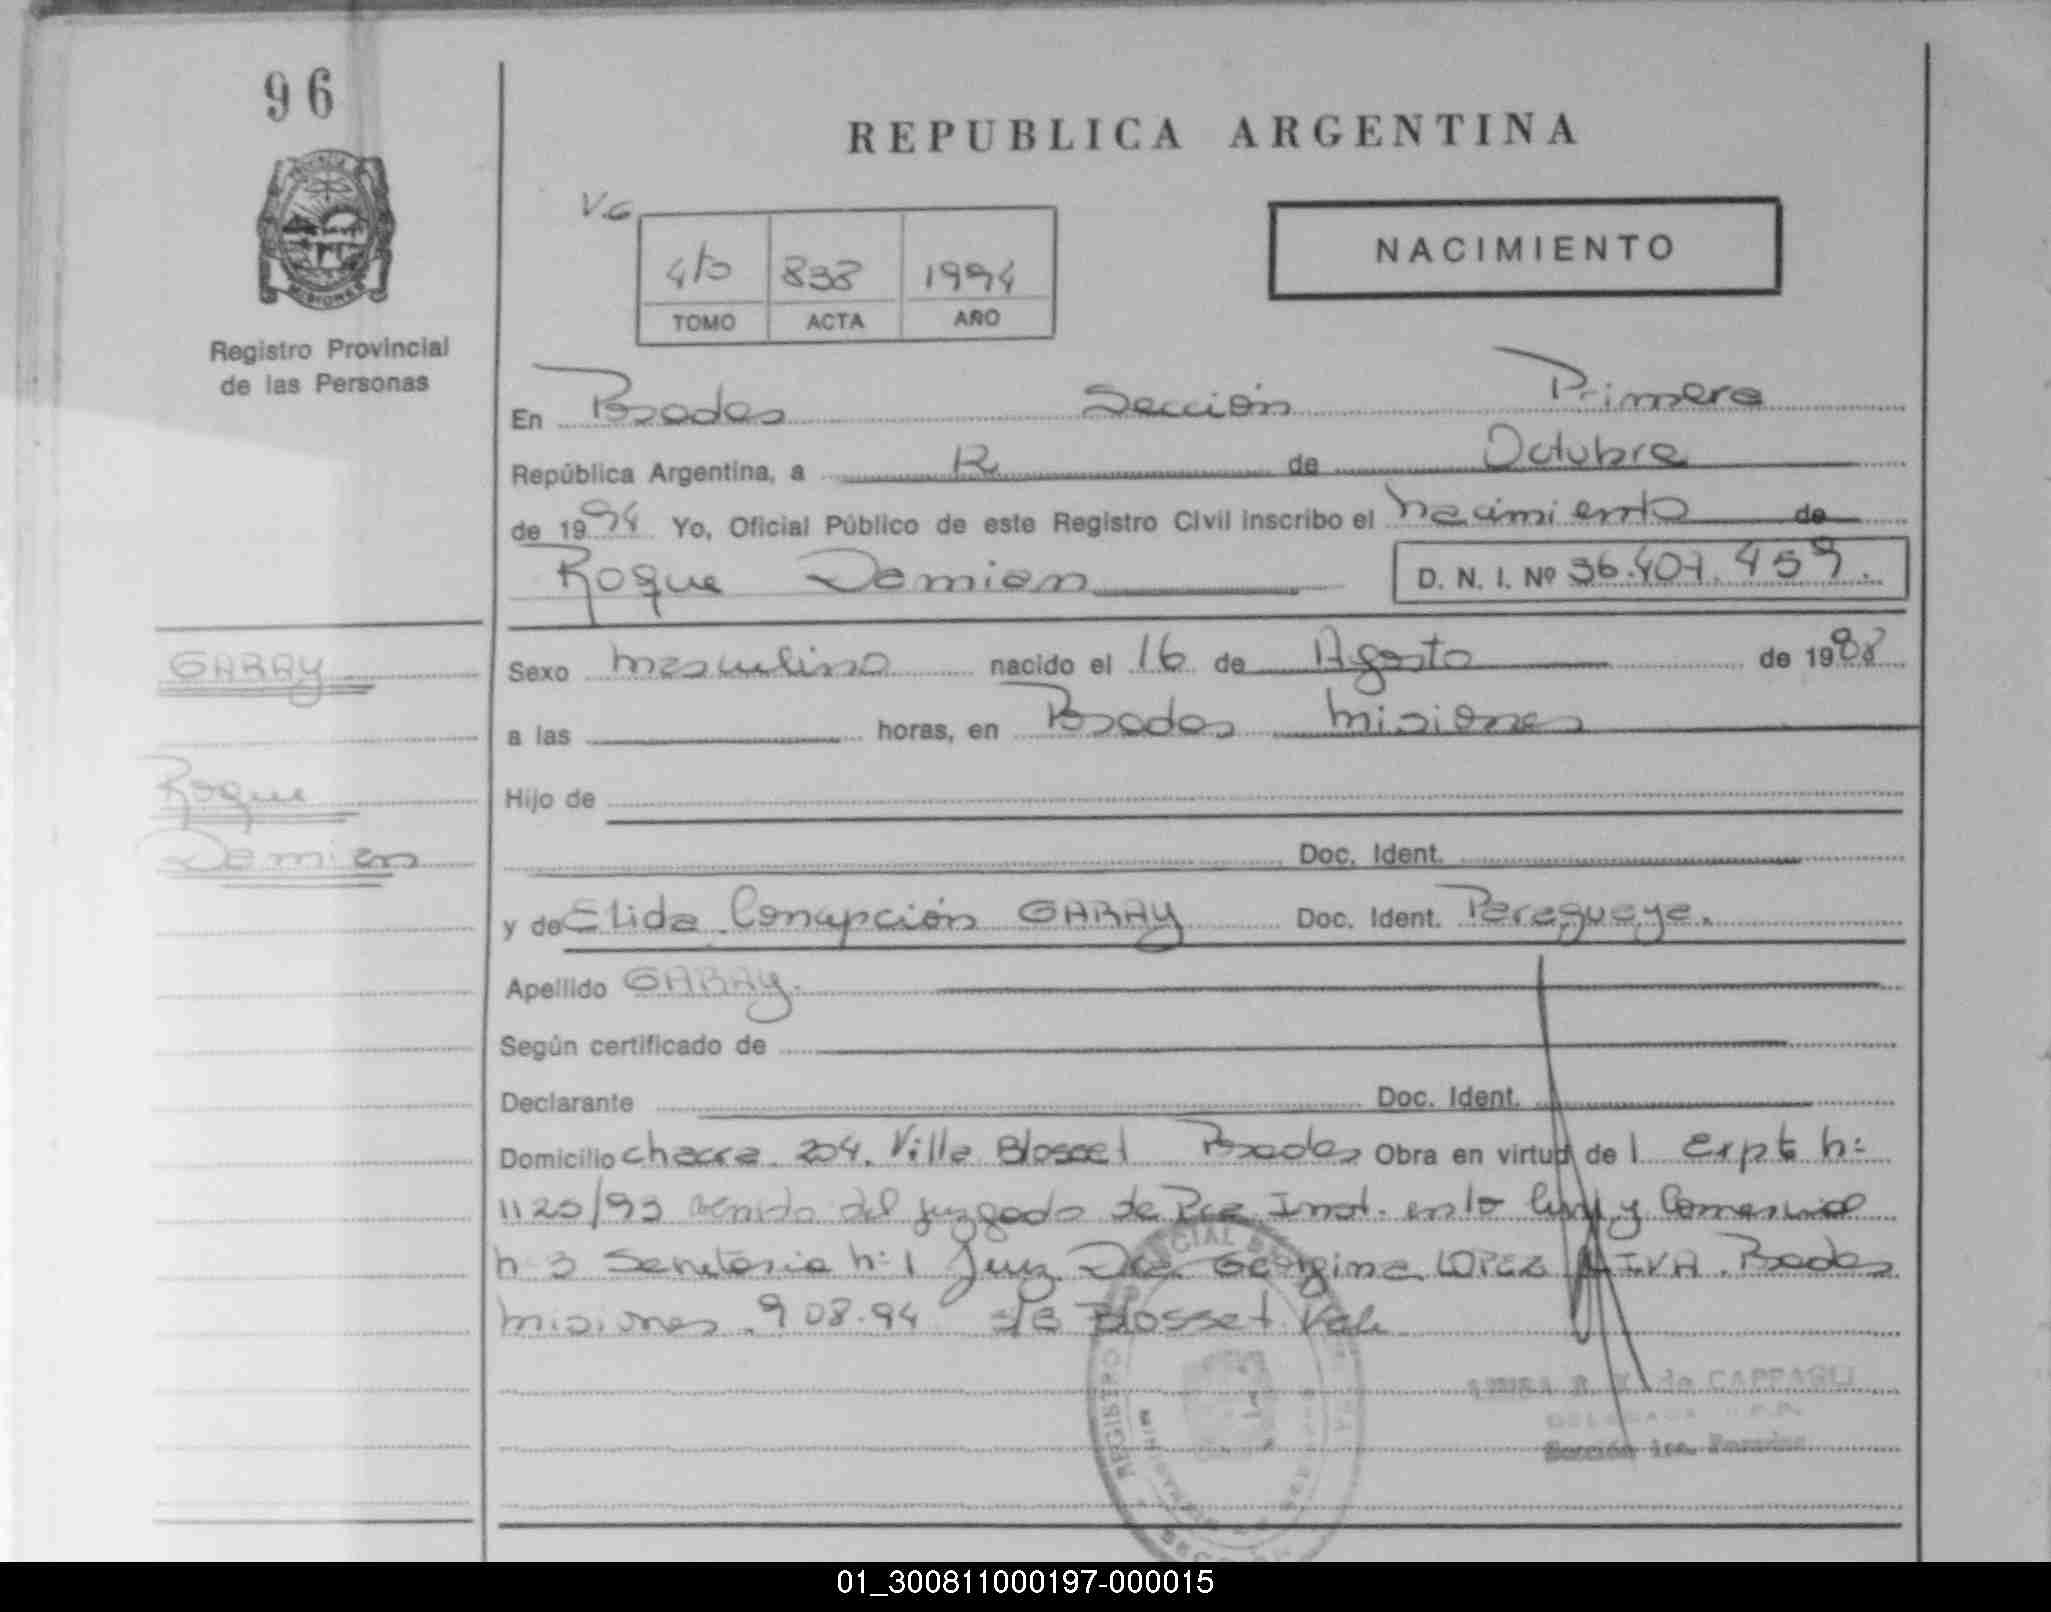 96
REPUBLICA ARGENTINA
V.G
4to 838 1994
TOMO ACTA AÑO
NACIMIENTO
MISIONES
Registro Provincial
de las Personas
En Posadas Sección Primera
República Argentina, a 12 de Octubre
de 1994 Yo, Oficial Público de este Registro Civil inscribo el nacimiento de
Roque Damian D. N. I. Nº 36.407.459.
GARAY
Roque
Damian
Sexo masculino nacido el 16 de Agosto de 1988
a las horas, en Posadas Misiones
Hijo de
Doc. Ident.
y de Elida Concepción GARAY Doc. Ident. Paraguaya.
Apellido GARAY.
Según certificado de
Declarante Doc. Ident.
Domicilio chacra 204. Villa Blosset Posadas Obra en virtud de l Expte n:
1125/93 venido del juzgado de Inst. en lo Civil y Comercial
n 3 Secretaria n:1 Juez Dra. Georgina LOPEZ LEIVA. Posadas
Misiones. 9 08.94 s/b Blosset Vale
de CAPPAGLI
DELEGADA
Sección 1ra. Posadas
01_300811000197-000015